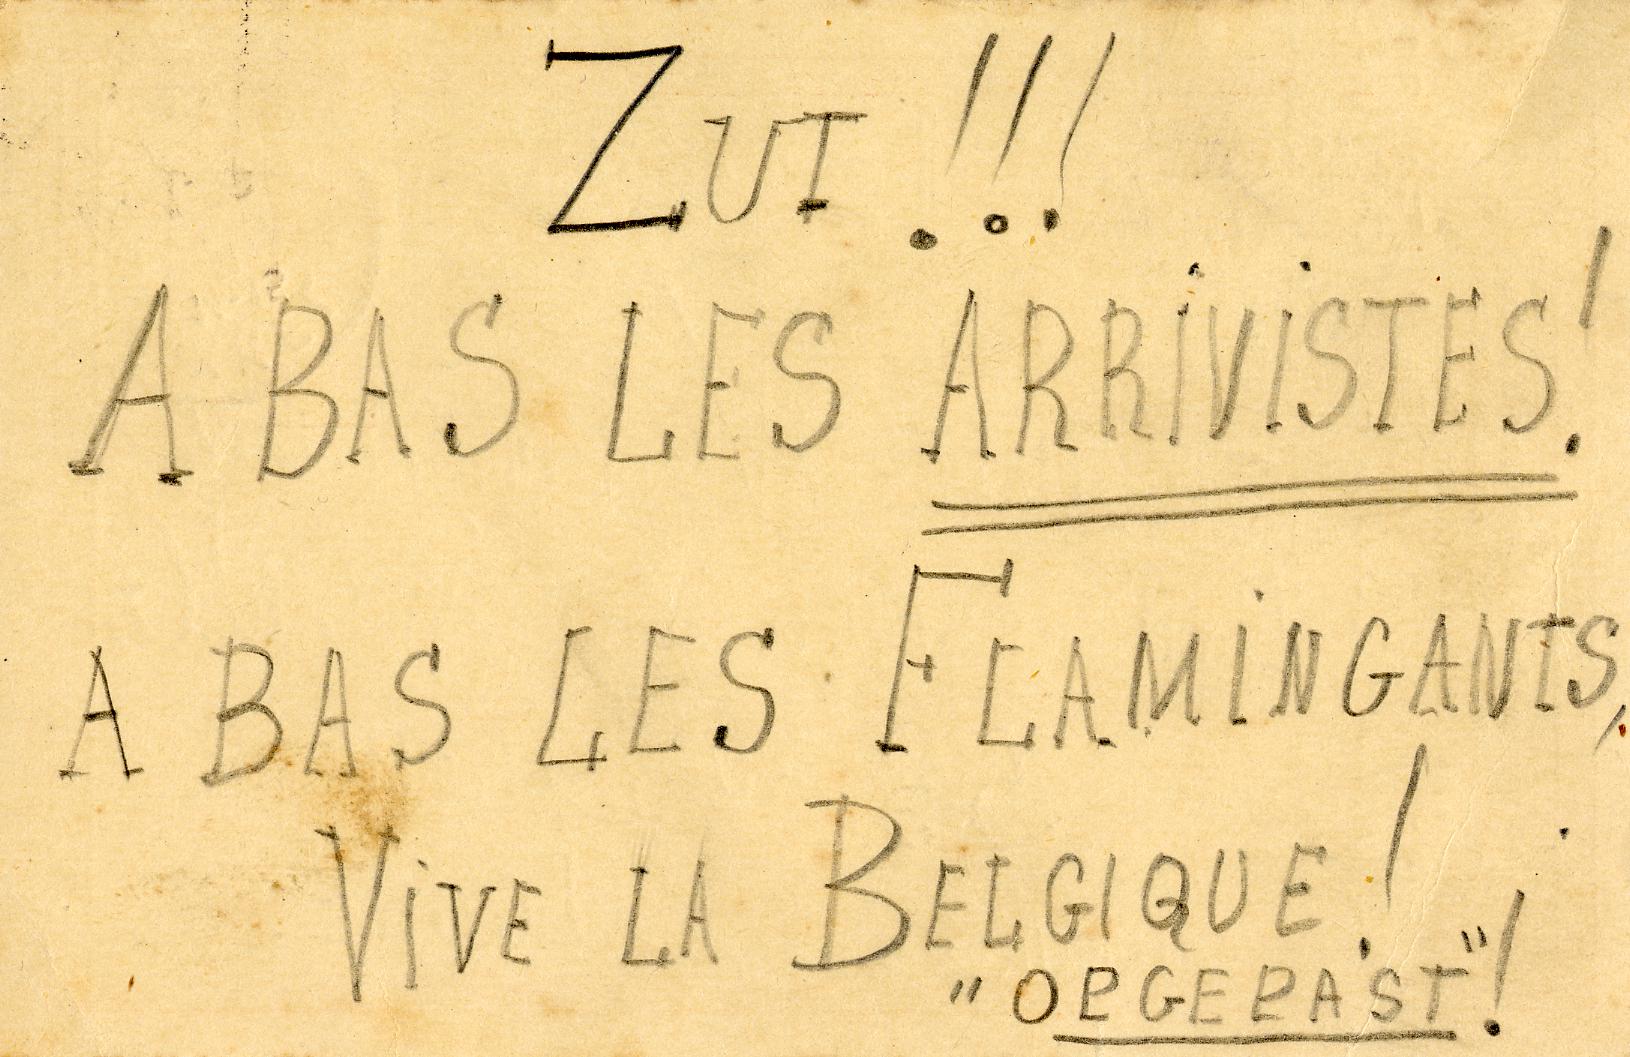 Zut !!!
A BAS LES ARRiViSTES!
A BAS LES FLAMiNGANTS,
ViVE LA BELGIQUE!
"OPGEPAST"!